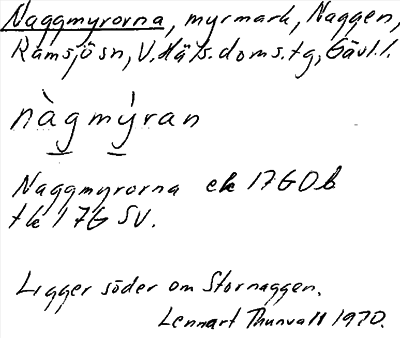 Naggmyrorna, myrmark, Naggen,
Ramsjösn, V. Häls. doms.tg, Gävl.l.
nàgmýran
Naggmyrorna ek 17G 0b
tk 17G SV.
Ligger söder om Stornaggen.
Lennart Thunvall 1970.